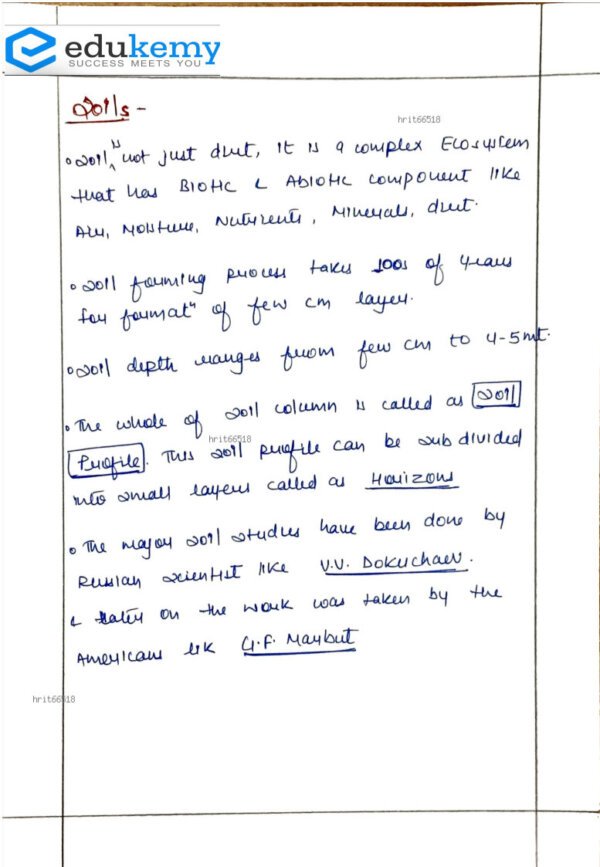 edukemy
SUCCESS MEETS YOU
Soils -
hrit66518
• Soil is not just dirt, it is a complex Ecosystem
that has Biotic & Abiotic component like
Air, Moisture, Nutrients, Minerals, dirt.
• Soil forming process takes 100s of years
for formatⁿ of few cm layer.
• Soil depth ranges from few cm to 4-5mt.
• The whole of soil column is called as Soil
hrit66518
Profile. This soil profile can be sub divided
into small layers called as Horizons
• The major soil studies have been done by
Russian scientist like V.V. Dokuchaev.
& later on the work was taken by the
Americans lik G.F. Maybut
hrit66518